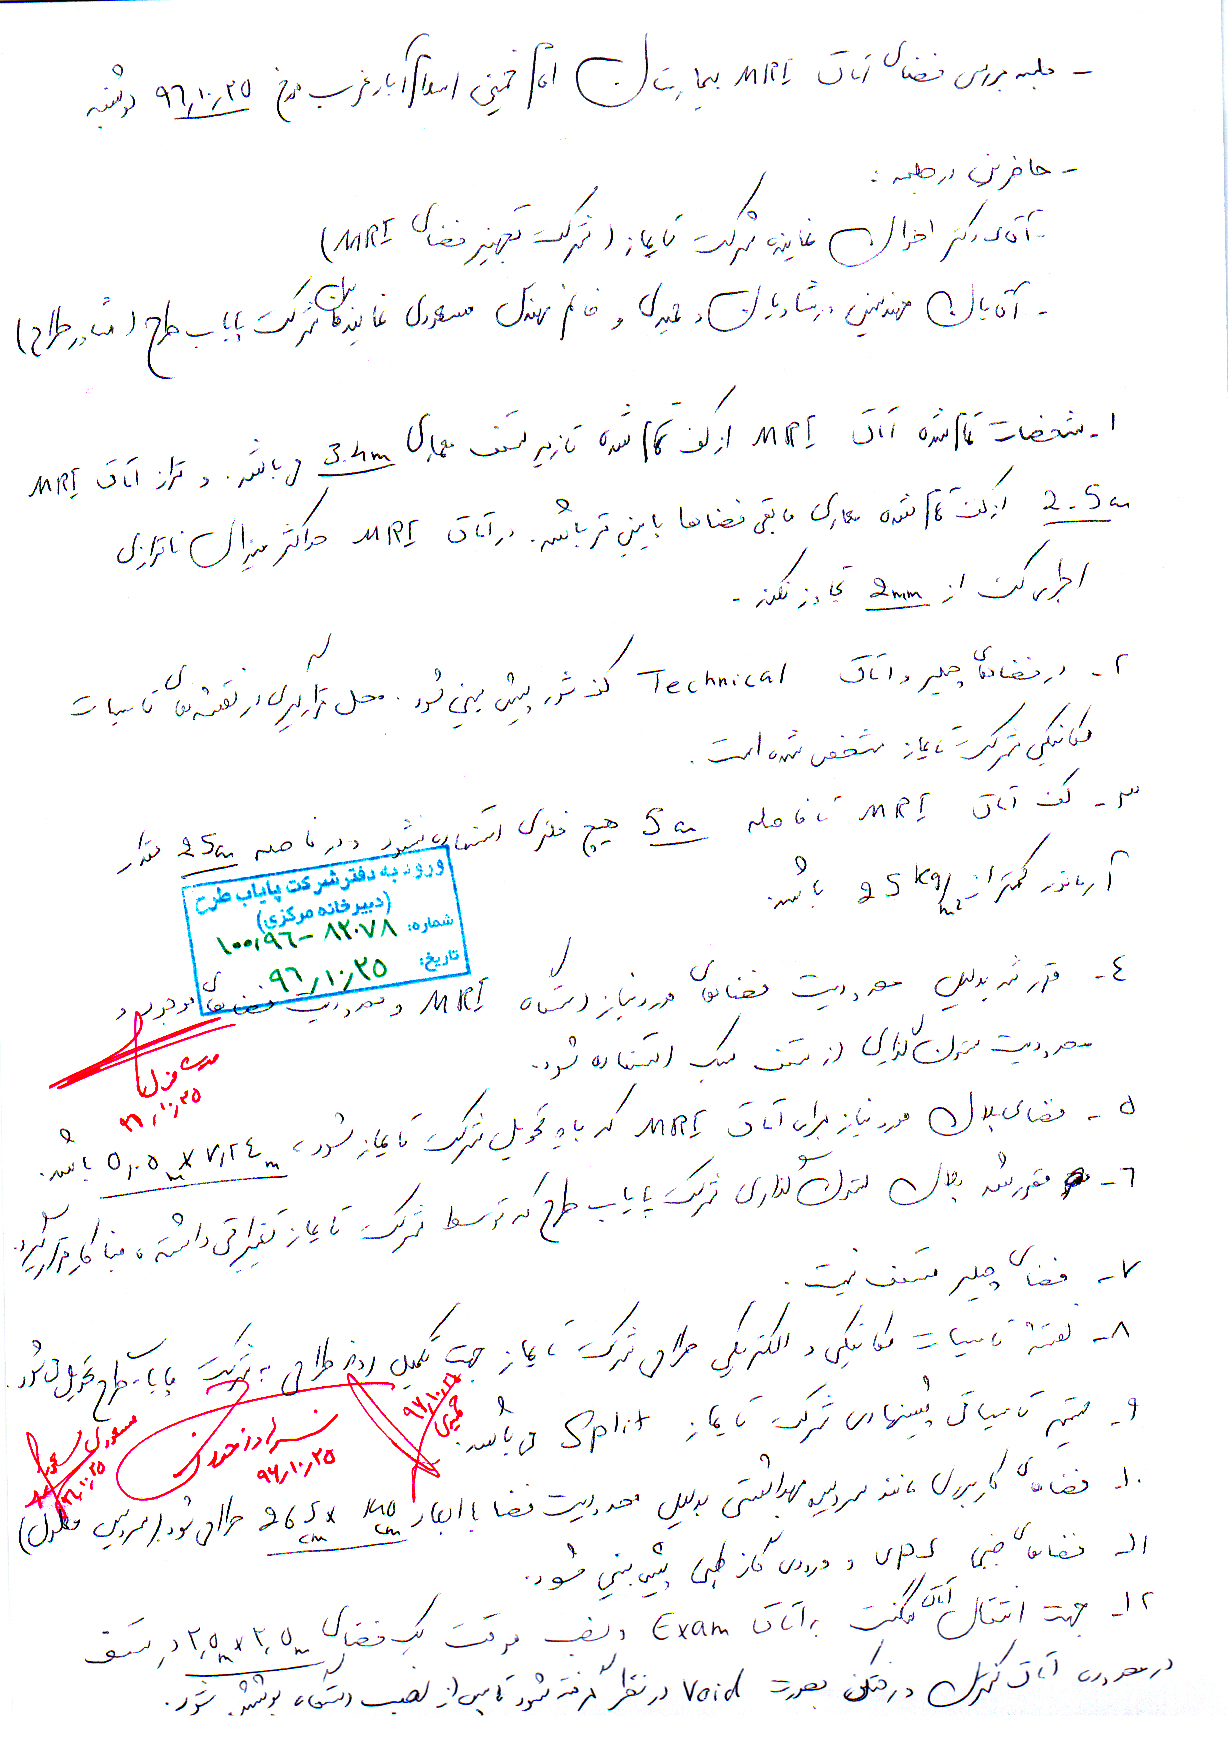 - جلسه بررسی فضای اتاق MRI بیمارستان امام خمینی اسلام آباد غرب مورخ ۹۶,۱۰,۲۵ دوشنبه
- حاضرین در جلسه :
- آقای دکتر اخوان نماینده شرکت تایماز (شرکت تجهیز فضای MRI)
- آقایان مهندسین و حمیدی و خانم مهندس مسعودی نمایندگان شرکت پایاب طرح (مشاور طراح)
۱- مشخصات تمام شده اتاق MRI از کف تمام شده تا زیر سقف معماری 3.4m می باشد. و تراز اتاق MRI
2.5cm از کف تمام شده معماری مابقی فضاها پایین تر باشد. در اتاق MRI حداکثر میزان ناترازی
اجرای کف از 2mm تجاوز نکند -
۲- در فضاهای چیلر و اتاق Technical کف شور پیش بینی شود. محل قرارگیری در نقشه های تاسیسات
مکانیکی شرکت تایماز مشخص شده است.
۳- کف اتاق MRI تا فاصله 5cm هیچ فلزی استفاده نشود و در فاصله 25cm مقدار
آرماتور کمتر از 25 kg/m2 باشد.
ورود به دفتر شرکت پایاب طرح
(دبیرخانه مرکزی)
شماره: ۱۰۰,۹۶-۸۲۰۷۸
تاریخ: ۹۶,۱۰,۲۵
۴- مقرر شد بدلیل محدودیت فضاهای مورد نیاز دستگاه MRI و محدودیت فضاهای موجود و
محدودیت ستون گذاری از سقف سبک استفاده شود.
۹۶,۱۰,۲۵
۵- فضای پلان مورد نیاز برای اتاق MRI که باید تحویل شرکت تایماز شود، ۵,۰۵m x ۷,۲۴m باشد.
۶- مقرر شد پلان ستون گذاری شرکت پایاب طرح که توسط شرکت تایماز تغییراتی داشته، مبنا کار قرار گیرد.
۷- فضای چیلر مسقف نیست.
۸- نقشه تاسیسات مکانیکی و الکتریکی طراحی شرکت تایماز جهت تکمیل روند طراحی به شرکت پایاب طرح تحویل می شود.
۹- سیستم تاسیساتی پیشنهادی شرکت تایماز Split می باشد.
مسعودی ۹۶,۱۰,۲۵
۹۶,۱۰,۲۵
حمیدی ۹۶,۱۰,۲۵
۱۰- فضاهای کاربردی مانند سرویس بهداشتی بدلیل محدودیت فضا با ابعاد 265cm x cm طراحی شود. (سرویس معلول)
۱۱- فضاهای جنبی UPS و ورودی گاز طبی پیش بینی شود.
۱۲- جهت انتقال مگنت به اتاق Exam و نصب موقت یک فضای ۲,۵m x ۲,۵m در سقف
در محدوده اتاق کنترل و رختکن بصورت Void در نظر گرفته شود تا پس از نصب دستگاه، پوشش شود.